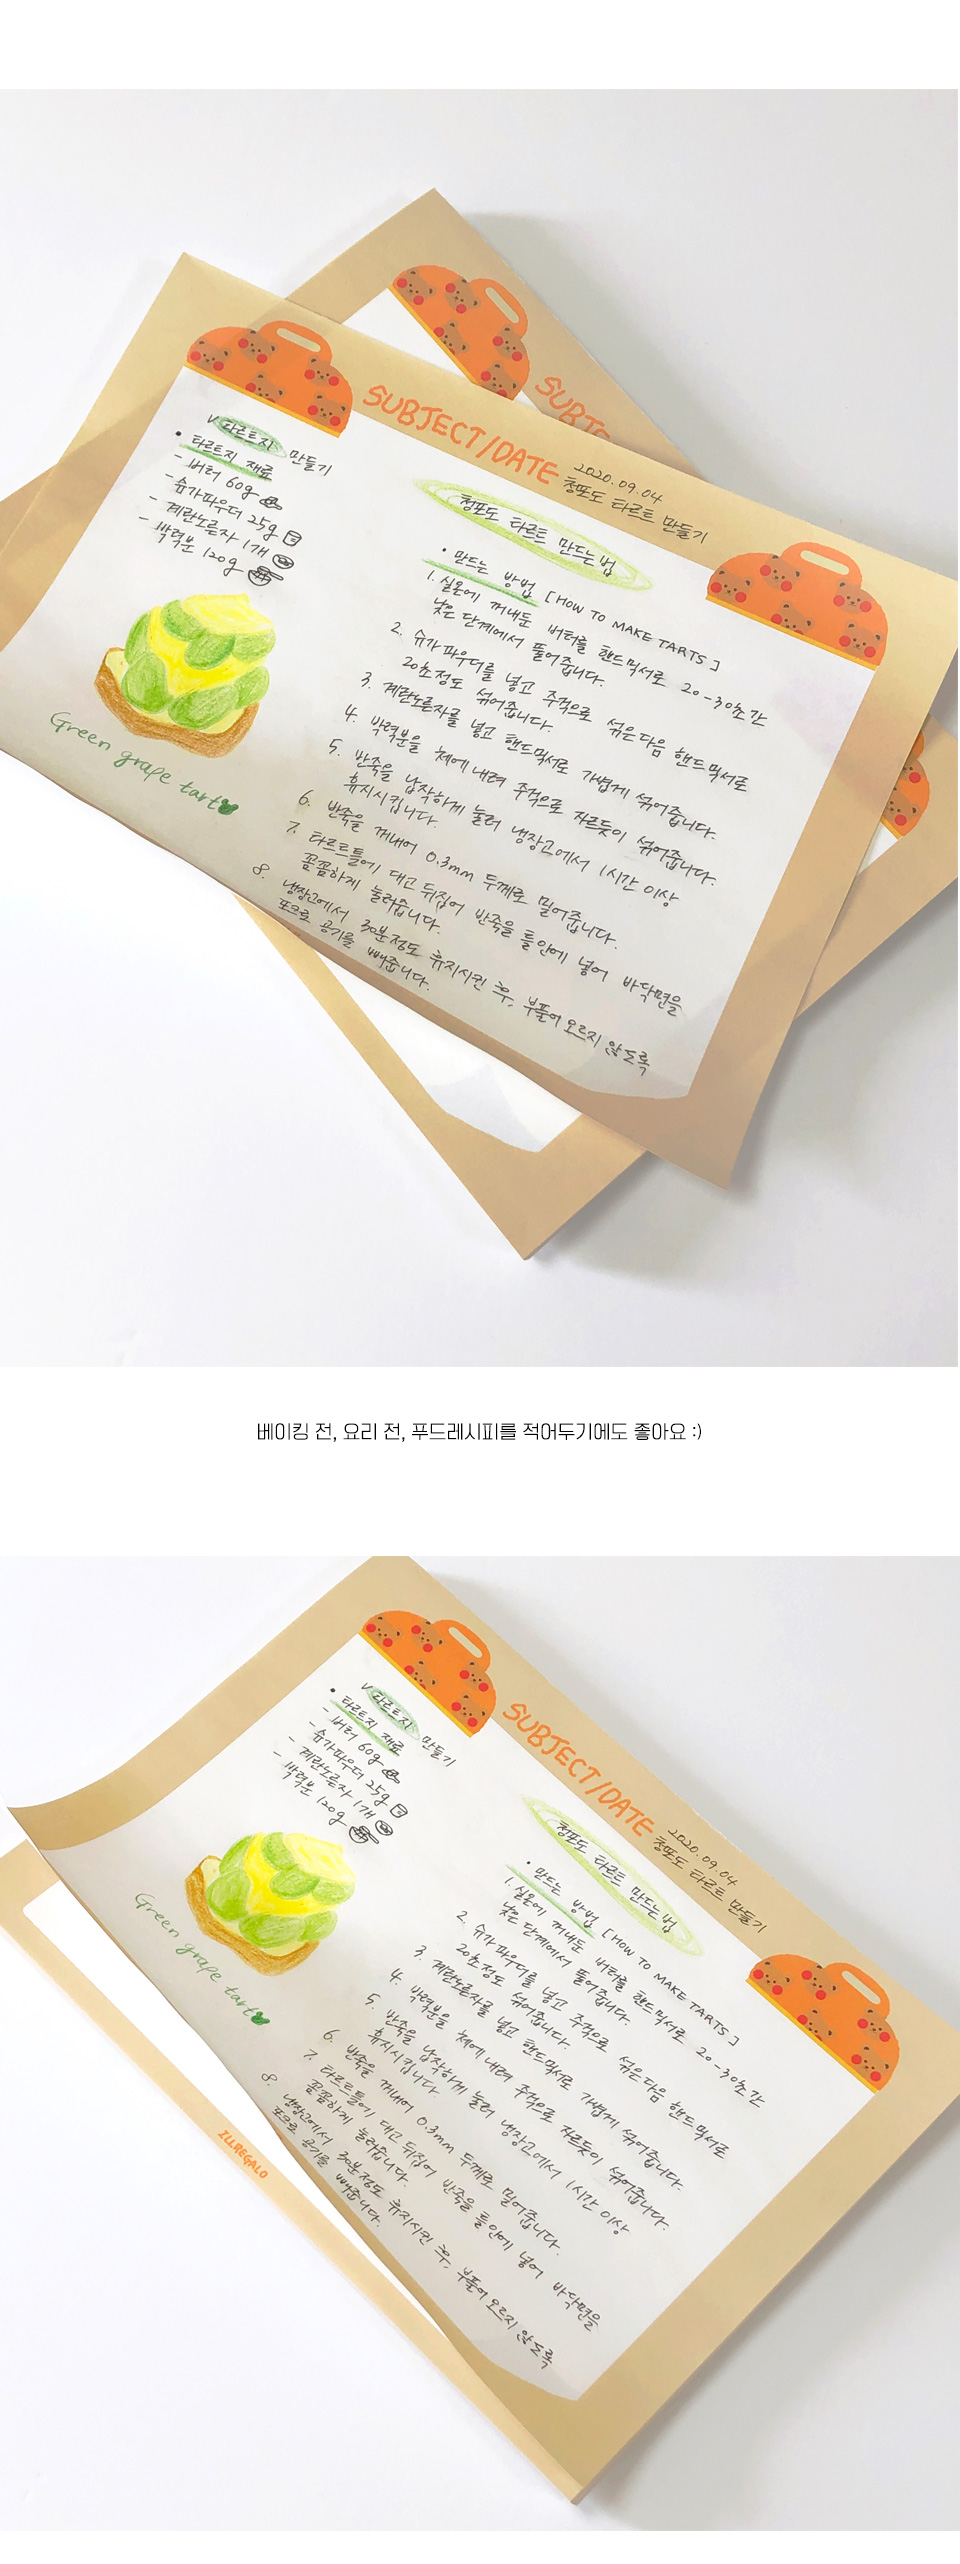 SUBJE
SUBJECT/DATE
2020.09.04
청포도 타르트 만들기
V 타르트지 만들기
• 타르트지 재료
- 버터 60g
- 슈가파우더 25g
- 계란노른자 1개
- 박력분 120g
Green grape tart
청포도 타르트 만드는 법
• 만드는 방법 [HOW TO MAKE TARTS]
1. 실온에 꺼내둔 버터를 핸드믹서로 20-30초간
낮은 단계에서 풀어줍니다.
2. 슈가파우더를 넣고 주걱으로 섞은다음 핸드믹서로
20초정도 섞어줍니다.
3. 계란노른자를 넣고 핸드믹서로 가볍게 섞어줍니다.
4. 박력분을 체에 내려 주걱으로 자르듯이 섞어줍니다.
5. 반죽을 납작하게 눌러 냉장고에서 1시간 이상
휴지시킵니다.
6. 반죽을 꺼내어 0.3mm 두께로 밀어줍니다.
7. 타르트틀에 대고 뒤집어 반죽을 틀안에 넣어 바닥면을
꼼꼼하게 눌러줍니다.
8. 냉장고에서 30분정도 휴지시킨 후, 부풀어 오르지 않도록
포크로 공기를 빼줍니다.
베이킹 전, 요리 전, 푸드레시피를 적어두기에도 좋아요 :)
SUBJECT/DATE
2020.09.04
청포도 타르트 만들기
V 타르트지 만들기
• 타르트지 재료
- 버터 60g
- 슈가파우더 25g
- 계란노른자 1개
- 박력분 120g
Green grape tart
청포도 타르트 만드는 법
• 만드는 방법 [HOW TO MAKE TARTS]
1. 실온에 꺼내둔 버터를 핸드믹서로 20-30초간
낮은 단계에서 풀어줍니다.
2. 슈가파우더를 넣고 주걱으로 섞은다음 핸드믹서로
20초정도 섞어줍니다.
3. 계란노른자를 넣고 핸드믹서로 가볍게 섞어줍니다.
4. 박력분을 체에 내려 주걱으로 자르듯이 섞어줍니다.
5. 반죽을 납작하게 눌러 냉장고에서 1시간 이상
휴지시킵니다.
6. 반죽을 꺼내어 0.3mm 두께로 밀어줍니다.
7. 타르트틀에 대고 뒤집어 반죽을 틀안에 넣어 바닥면을
꼼꼼하게 눌러줍니다.
8. 냉장고에서 30분정도 휴지시킨 후, 부풀어 오르지 않도록
포크로 공기를 빼줍니다.
ILLREGALO